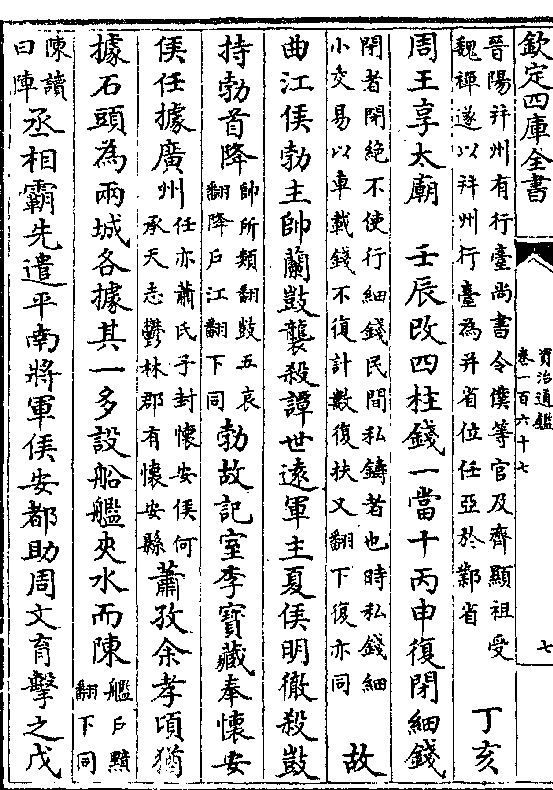 欽定四庫全書
資治通鑑
卷一百六十七
七
晉陽幷州有行臺尚書令僕等官及齊顯祖受
魏禪遂以幷州行臺為并省位任亞於鄴省
丁亥
周王享太廟　壬辰改四柱錢一當十丙申復閉細錢
閉者閉絕不使行細錢民間私鑄者也時私錢細
小交易以車載錢不復計數復扶又翻下復亦同
故
曲江侯勃主帥蘭敱襲殺譚世遠軍主夏侯明徹殺敱
持勃首降
帥所類翻敱五哀
翻降戶江翻下同
勃故記室李寶藏奉懷安
侯任據廣州
任亦蕭氏子封懷安侯何
承天志鬱林郡有懷安縣
蕭孜余孝頃猶
據石頭為兩城各據其一多設船艦夾水而陳
艦戶黯
翻下同
陳讀
曰陣
丞相霸先遣平南將軍侯安都助周文育擊之戊